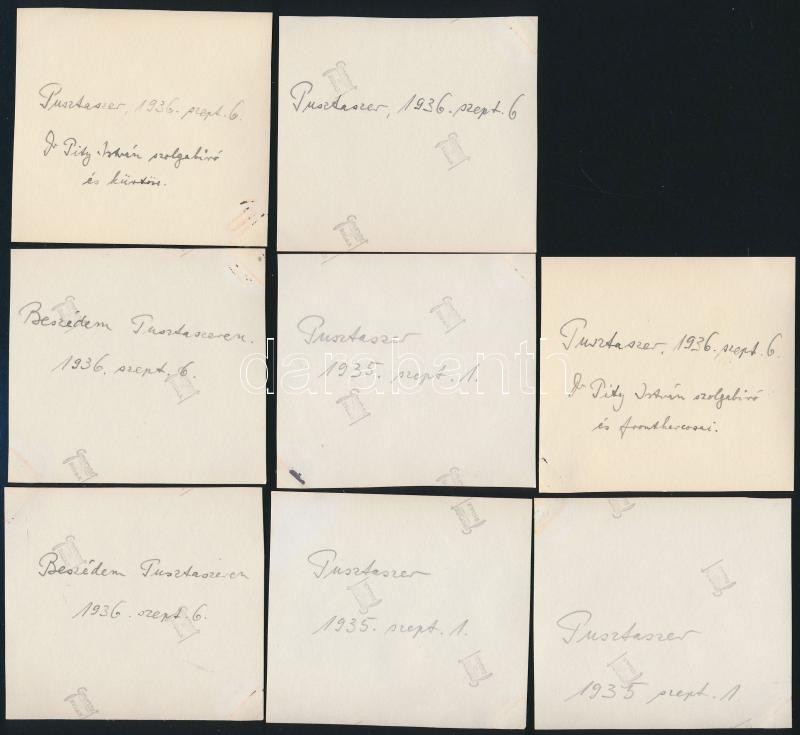 Pusztaszer, 1936. szept. 6.
Dr Pity István szolgabiró
és kürtöse.
Pusztaszer, 1936. szept. 6
Beszédem Pusztaszeren.
1936. szept. 6.
Pusztaszer
1935. szept. 1.
Pusztaszer, 1936. szept. 6.
Dr Pity István szolgabiró
és frontharcosai.
darabanth
Beszédem Pusztaszeren
1936. szept. 6.
Pusztaszer
1935. szept. 1.
Pusztaszer
1935 szept. 1.